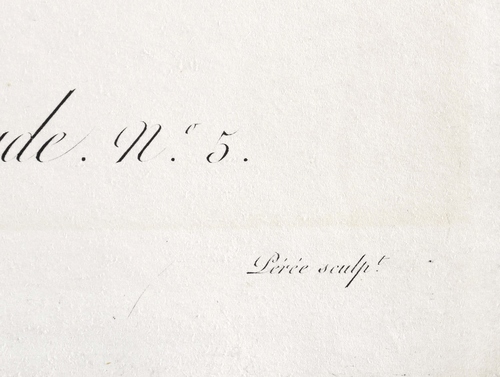 de. N.º 5.
Pérée sculp.t